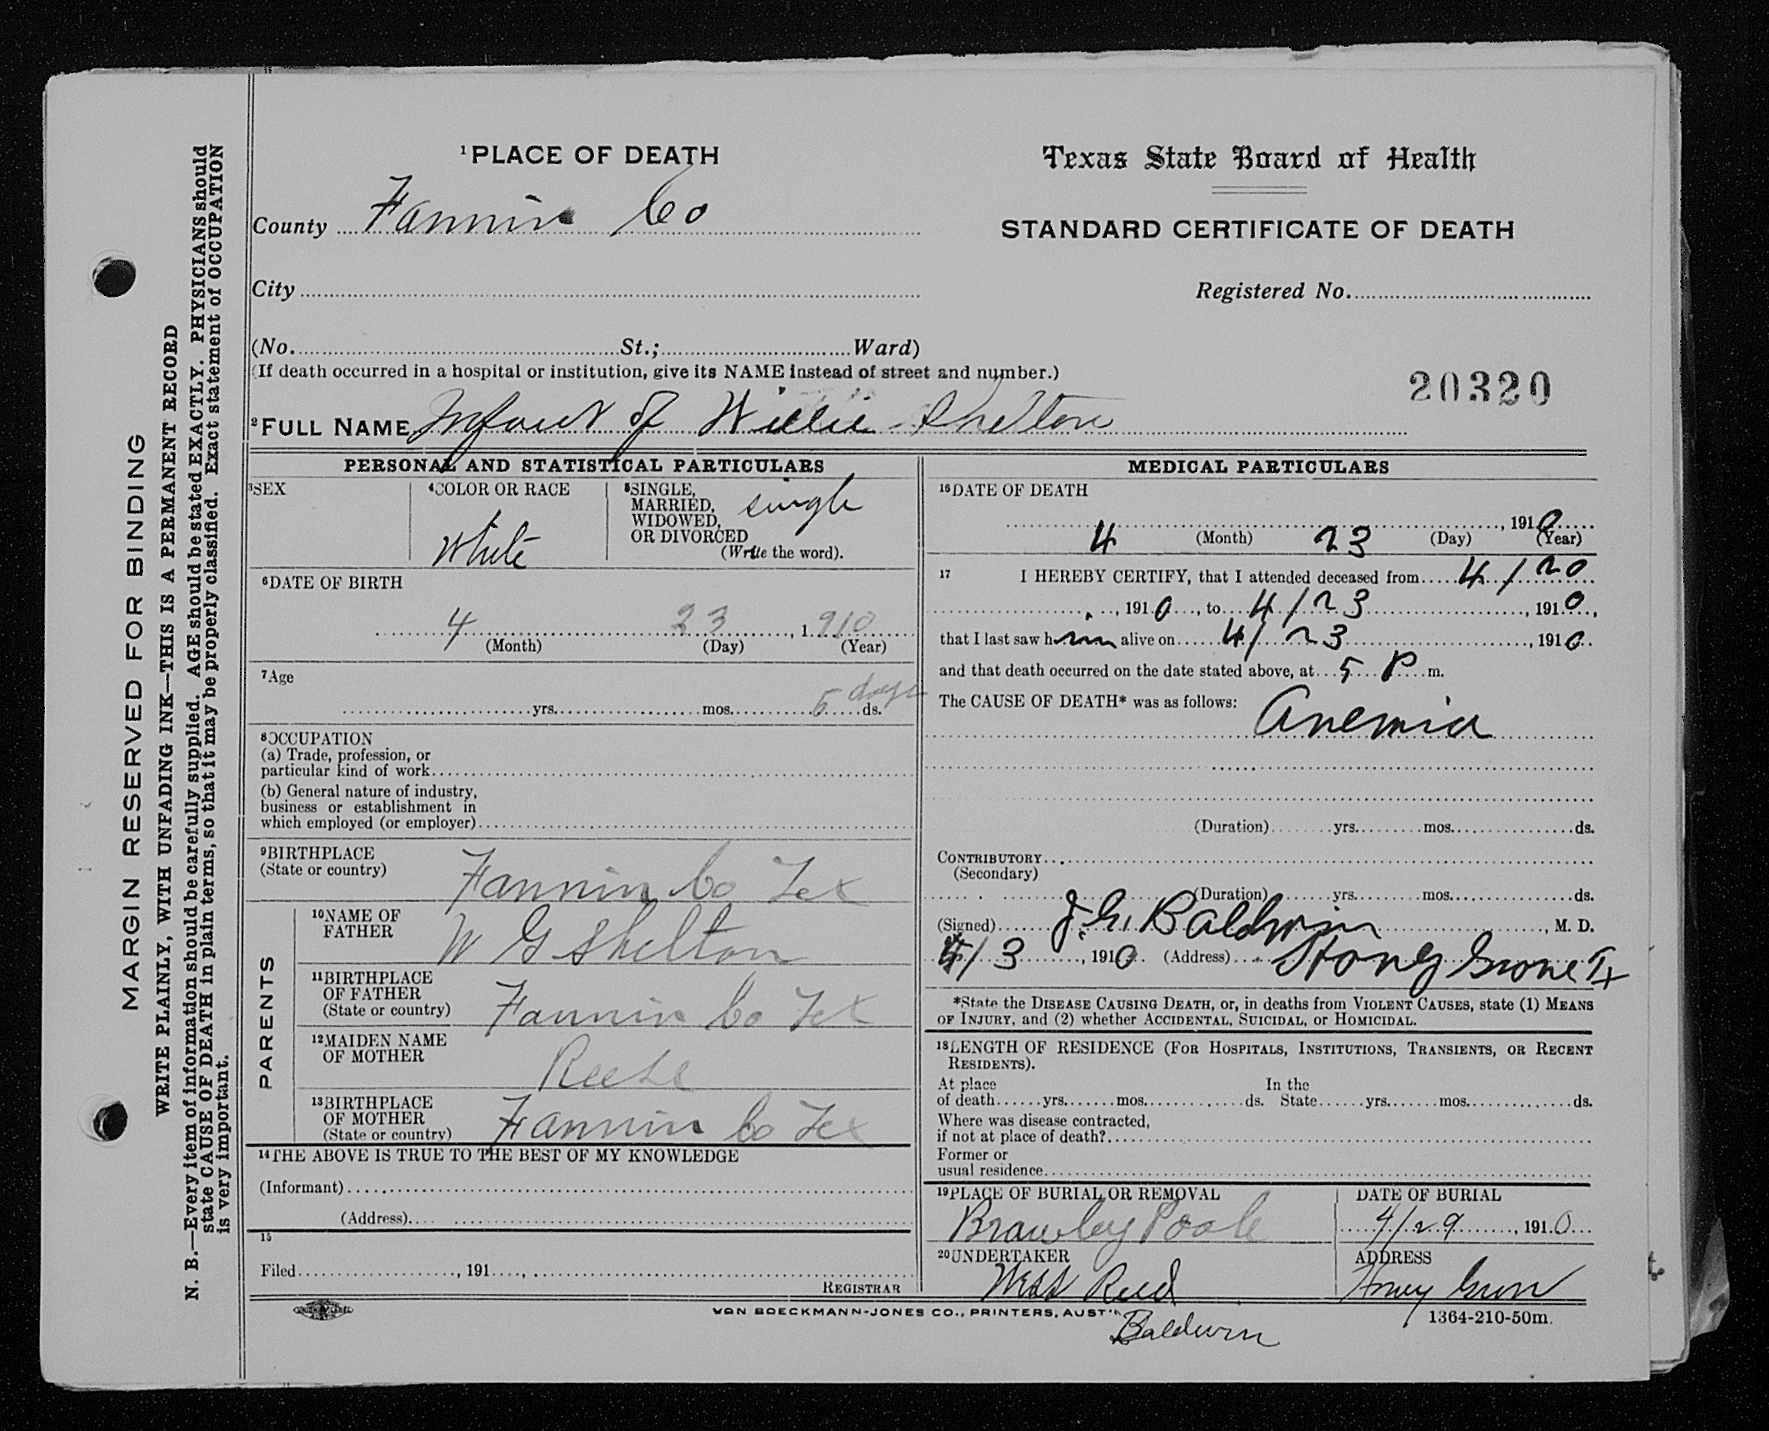 MARGIN RESERVED FOR BINDING
WRITE PLAINLY, WITH UNFADING INK—THIS IS A PERMANENT RECORD
N. B.—Every item of information should be carefully supplied. AGE should be stated EXACTLY. PHYSICIANS should
state CAUSE OF DEATH in plain terms, so that it may be properly classified. Exact statement of OCCUPATION
is very important.
1 PLACE OF DEATH
County Fannin Co
City
(No. St.; Ward)
(If death occurred in a hospital or institution, give its NAME instead of street and number.)
Texas State Board of Health
STANDARD CERTIFICATE OF DEATH
Registered No.
20320
2 FULL NAME Infant of Willie Shelton
PERSONAL AND STATISTICAL PARTICULARS
3 SEX
4 COLOR OR RACE
White
5 SINGLE, MARRIED, WIDOWED, OR DIVORCED single
(Write the word).
6 DATE OF BIRTH
4 23, 1910
(Month) (Day) (Year)
7 Age
yrs. mos. 5 ds. days
8 OCCUPATION
(a) Trade, profession, or
particular kind of work
(b) General nature of industry,
business or establishment in
which employed (or employer)
9 BIRTHPLACE
(State or country) Fannin Co Tex
PARENTS
10 NAME OF
FATHER W G Shelton
11 BIRTHPLACE
OF FATHER
(State or country) Fannin Co Tex
12 MAIDEN NAME
OF MOTHER Reese
13 BIRTHPLACE
OF MOTHER
(State or country) Fannin Co Tex
14 THE ABOVE IS TRUE TO THE BEST OF MY KNOWLEDGE
(Informant)
(Address)
15
Filed , 191 ,
REGISTRAR
MEDICAL PARTICULARS
16 DATE OF DEATH
, 1910
4 (Month) 23 (Day) (Year)
17 I HEREBY CERTIFY, that I attended deceased from 4/20
, 1910, to 4/23, 1910,
that I last saw him alive on 4/23, 1910
and that death occurred on the date stated above, at 5 P m.
The CAUSE OF DEATH* was as follows: Anemia
(Duration) yrs. mos. ds.
CONTRIBUTORY
(Secondary)
(Duration) yrs. mos. ds.
(Signed) J. G. Baldwin, M. D.
/3, 1910 (Address) Honey Grove Tx
*State the DISEASE CAUSING DEATH, or, in deaths from VIOLENT CAUSES, state (1) MEANS
OF INJURY, and (2) whether ACCIDENTAL, SUICIDAL, or HOMICIDAL.
18 LENGTH OF RESIDENCE (FOR HOSPITALS, INSTITUTIONS, TRANSIENTS, OR RECENT
RESIDENTS).
At place In the
of death yrs. mos. ds. State yrs. mos. ds.
Where was disease contracted,
if not at place of death?
Former or
usual residence
19 PLACE OF BURIAL OR REMOVAL
Brawley Poole
DATE OF BURIAL
4/29, 1910
20 UNDERTAKER
Reed
ADDRESS
Honey Grove
VON BOECKMANN-JONES CO., PRINTERS, AUSTIN
Baldwin
1364-210-50m.